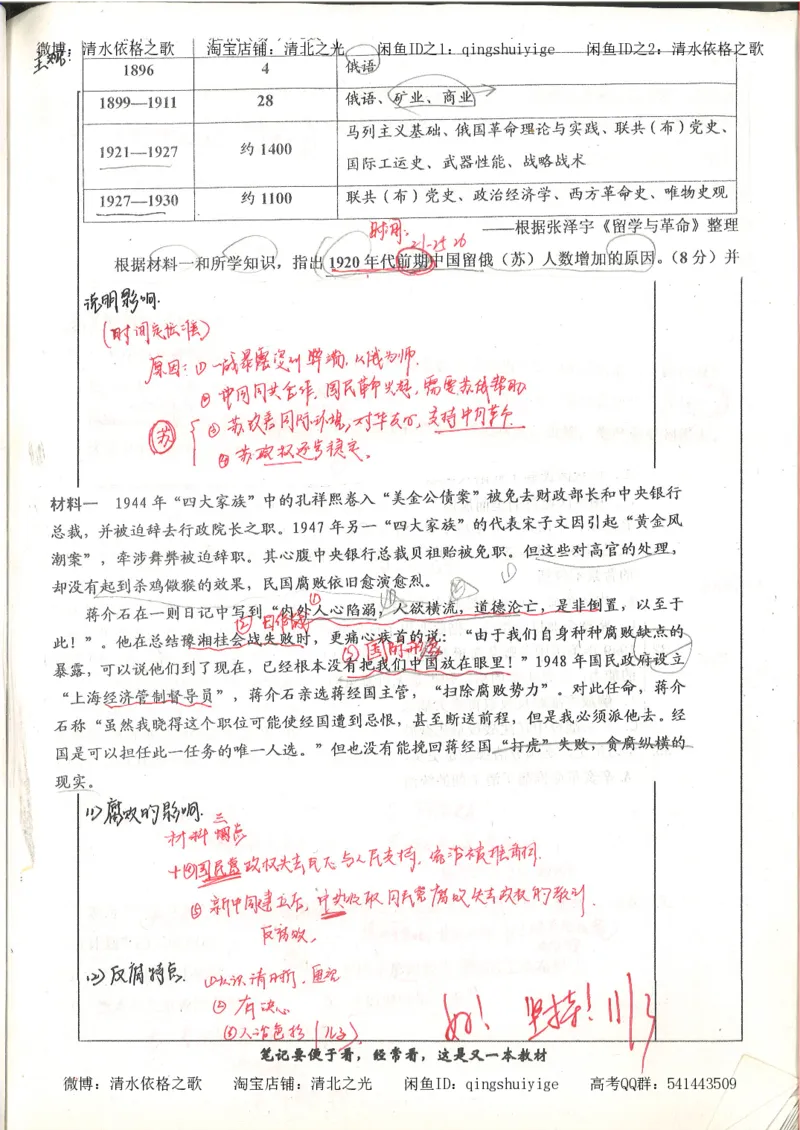 微博：清水依格之歌 淘宝店铺：清北之光 闲鱼ID之1：qingshuiyige 闲鱼ID之2：清水依格之歌
1896 4 俄语
1899—1911 28 俄语、矿业、商业
1921—1927 约 1400 马列主义基础、俄国革命理论与实践、联共（布）党史、
国际工运史、武器性能、战略战术
1927—1930 约 1100 联共（布）党史、政治经济学、西方革命史、唯物史观
——根据张泽宇《留学与革命》整理
时间：
21-25 26
根据材料一和所学知识，指出 1920 年代前期中国留俄（苏）人数增加的原因。（8 分）并
说明影响.
(时间定位准)
原因：① 一战暴露资必弊端，以俄为师.
② 中国国共合作，国民革命兴起，需要苏俄帮助
苏
③ 苏改善国际环境，对华友好，支持中国革命.
④ 苏政权逐步稳定。
材料一 1944 年“四大家族”中的孔祥熙卷入“美金公债案”被免去财政部长和中央银行
总裁，并被迫辞去行政院长之职。1947 年另一“四大家族”的代表宋子文因引起“黄金风
潮案”，牵涉舞弊被迫辞职。其心腹中央银行总裁贝祖贻被免职。但这些对高官的处理，
却没有起到杀鸡儆猴的效果，民国腐败依旧愈演愈烈。
蒋介石在一则日记中写到“内外人心陷溺，人欲横流，道德沦亡，是非倒置，以至于
此！”。他在总结豫湘桂会战失败时，更痛心疾首的说：“由于我们自身种种腐败缺点的
暴露，可以说他们到了现在，已经根本没有把我们中国放在眼里！”1948 年国民政府设立
“上海经济管制督导员”，蒋介石亲选蒋经国主管，“扫除腐败势力”。对此任命，蒋介
石称“虽然我晓得这个职位可能使经国遭到忌恨，甚至断送前程，但是我必须派他去。经
国是可以担任此一任务的唯一人选。”但也没有能挽回蒋经国“打虎”失败，贪腐纵横的
现实。
(1) 腐败的影响.
材料 三点
+④国民党政权失去民心与人民支持，统治被推翻.
⑤ 新中国建立后，中共吸取国民党腐败失去政权的教训.
反腐败。
(2) 反腐特点. ①认识清晰，重视
② 有决心
③人治色彩（儿子）.
好！ 坚持！
笔记要便于看，经常看，这是又一本教材
微博：清水依格之歌 淘宝店铺：清北之光 闲鱼ID：qingshuiyige 高考QQ群：541443509